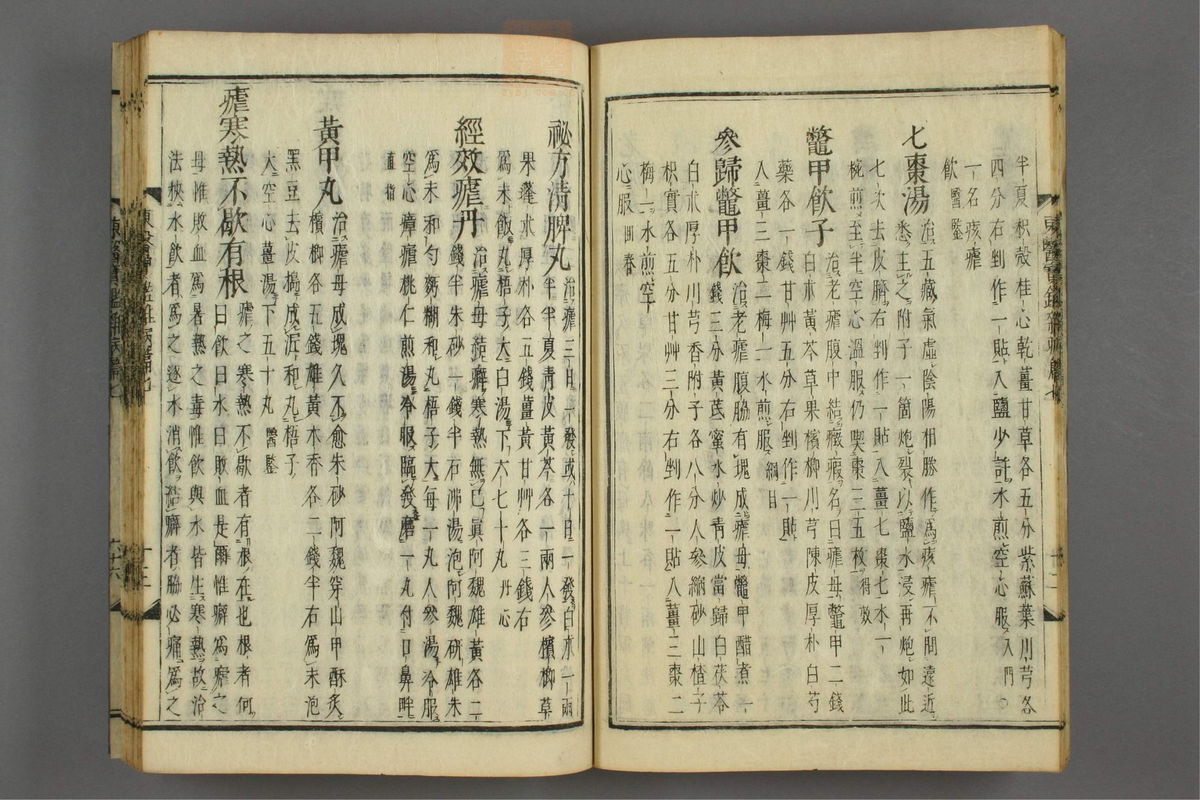 半夏枳殼桂心乾薑甘草各五分紫蘇葉川芎各
四分右剉作一貼入鹽少許水煎空心服入門○
一名痎瘧
飲醫鑒
七棗湯治五藏氣虛陰陽相勝作爲痎瘧不問遠近
悉主之附子一箇炮裂以鹽水浸再炮如此
七次去皮臍右剉作一貼入薑七棗七水一
椀煎至半空心溫服仍喫棗三五枚得效
鱉甲飮子治老瘧腹中結癥瘕名曰瘧母鱉甲二錢
白朮黃芩草果檳榔川芎陳皮厚朴白芍
藥各一錢甘艸五分右剉作一貼
入薑三棗二梅一水煎服綱目
參歸鱉甲飮治老瘧腹脇有塊成瘧母鱉甲醋煮一
錢三分黃芪蜜水炒靑皮當歸白茯苓
白朮厚朴川芎香附子各八分人參縮砂山樝子
枳實各五分甘艸三分右剉作一貼入薑三棗二
梅一水煎空
心服回春
祕方淸脾丸治瘧三日一發或十日一發白朮一兩
半半夏靑皮黃芩各一兩人參檳榔草
果蓬朮厚朴各五錢薑黃甘艸各三錢右
爲末飯丸梧子大白湯下六七十丸丹心
經效瘧丹治瘧母結癖寒熱無已眞阿魏雄黃各二
錢半朱砂一錢半右沸湯泡阿魏硏雄朱
爲末和勻麪糊和丸梧子大每一丸人參湯冷服
空心瘴瘧桃仁煎湯冷服臨發磨一丸付口鼻畔
直指
黃甲丸治瘧母成塊久不愈朱砂阿魏穿山甲酥炙
檳榔各五錢雄黃木香各二錢半右爲末泡
黑豆去皮搗成泥和丸梧子
大空心薑湯下五十丸醫鑒
瘧寒熱不歇有根瘧之寒熱不歇者有根在也根者何
曰飮曰水曰敗血是爾惟癖爲瘧之
母惟敗血爲暑熱之毒惟飮與水皆生寒熱故治
法挾水飮者爲之逐水消飮結癖者脇必痛爲之